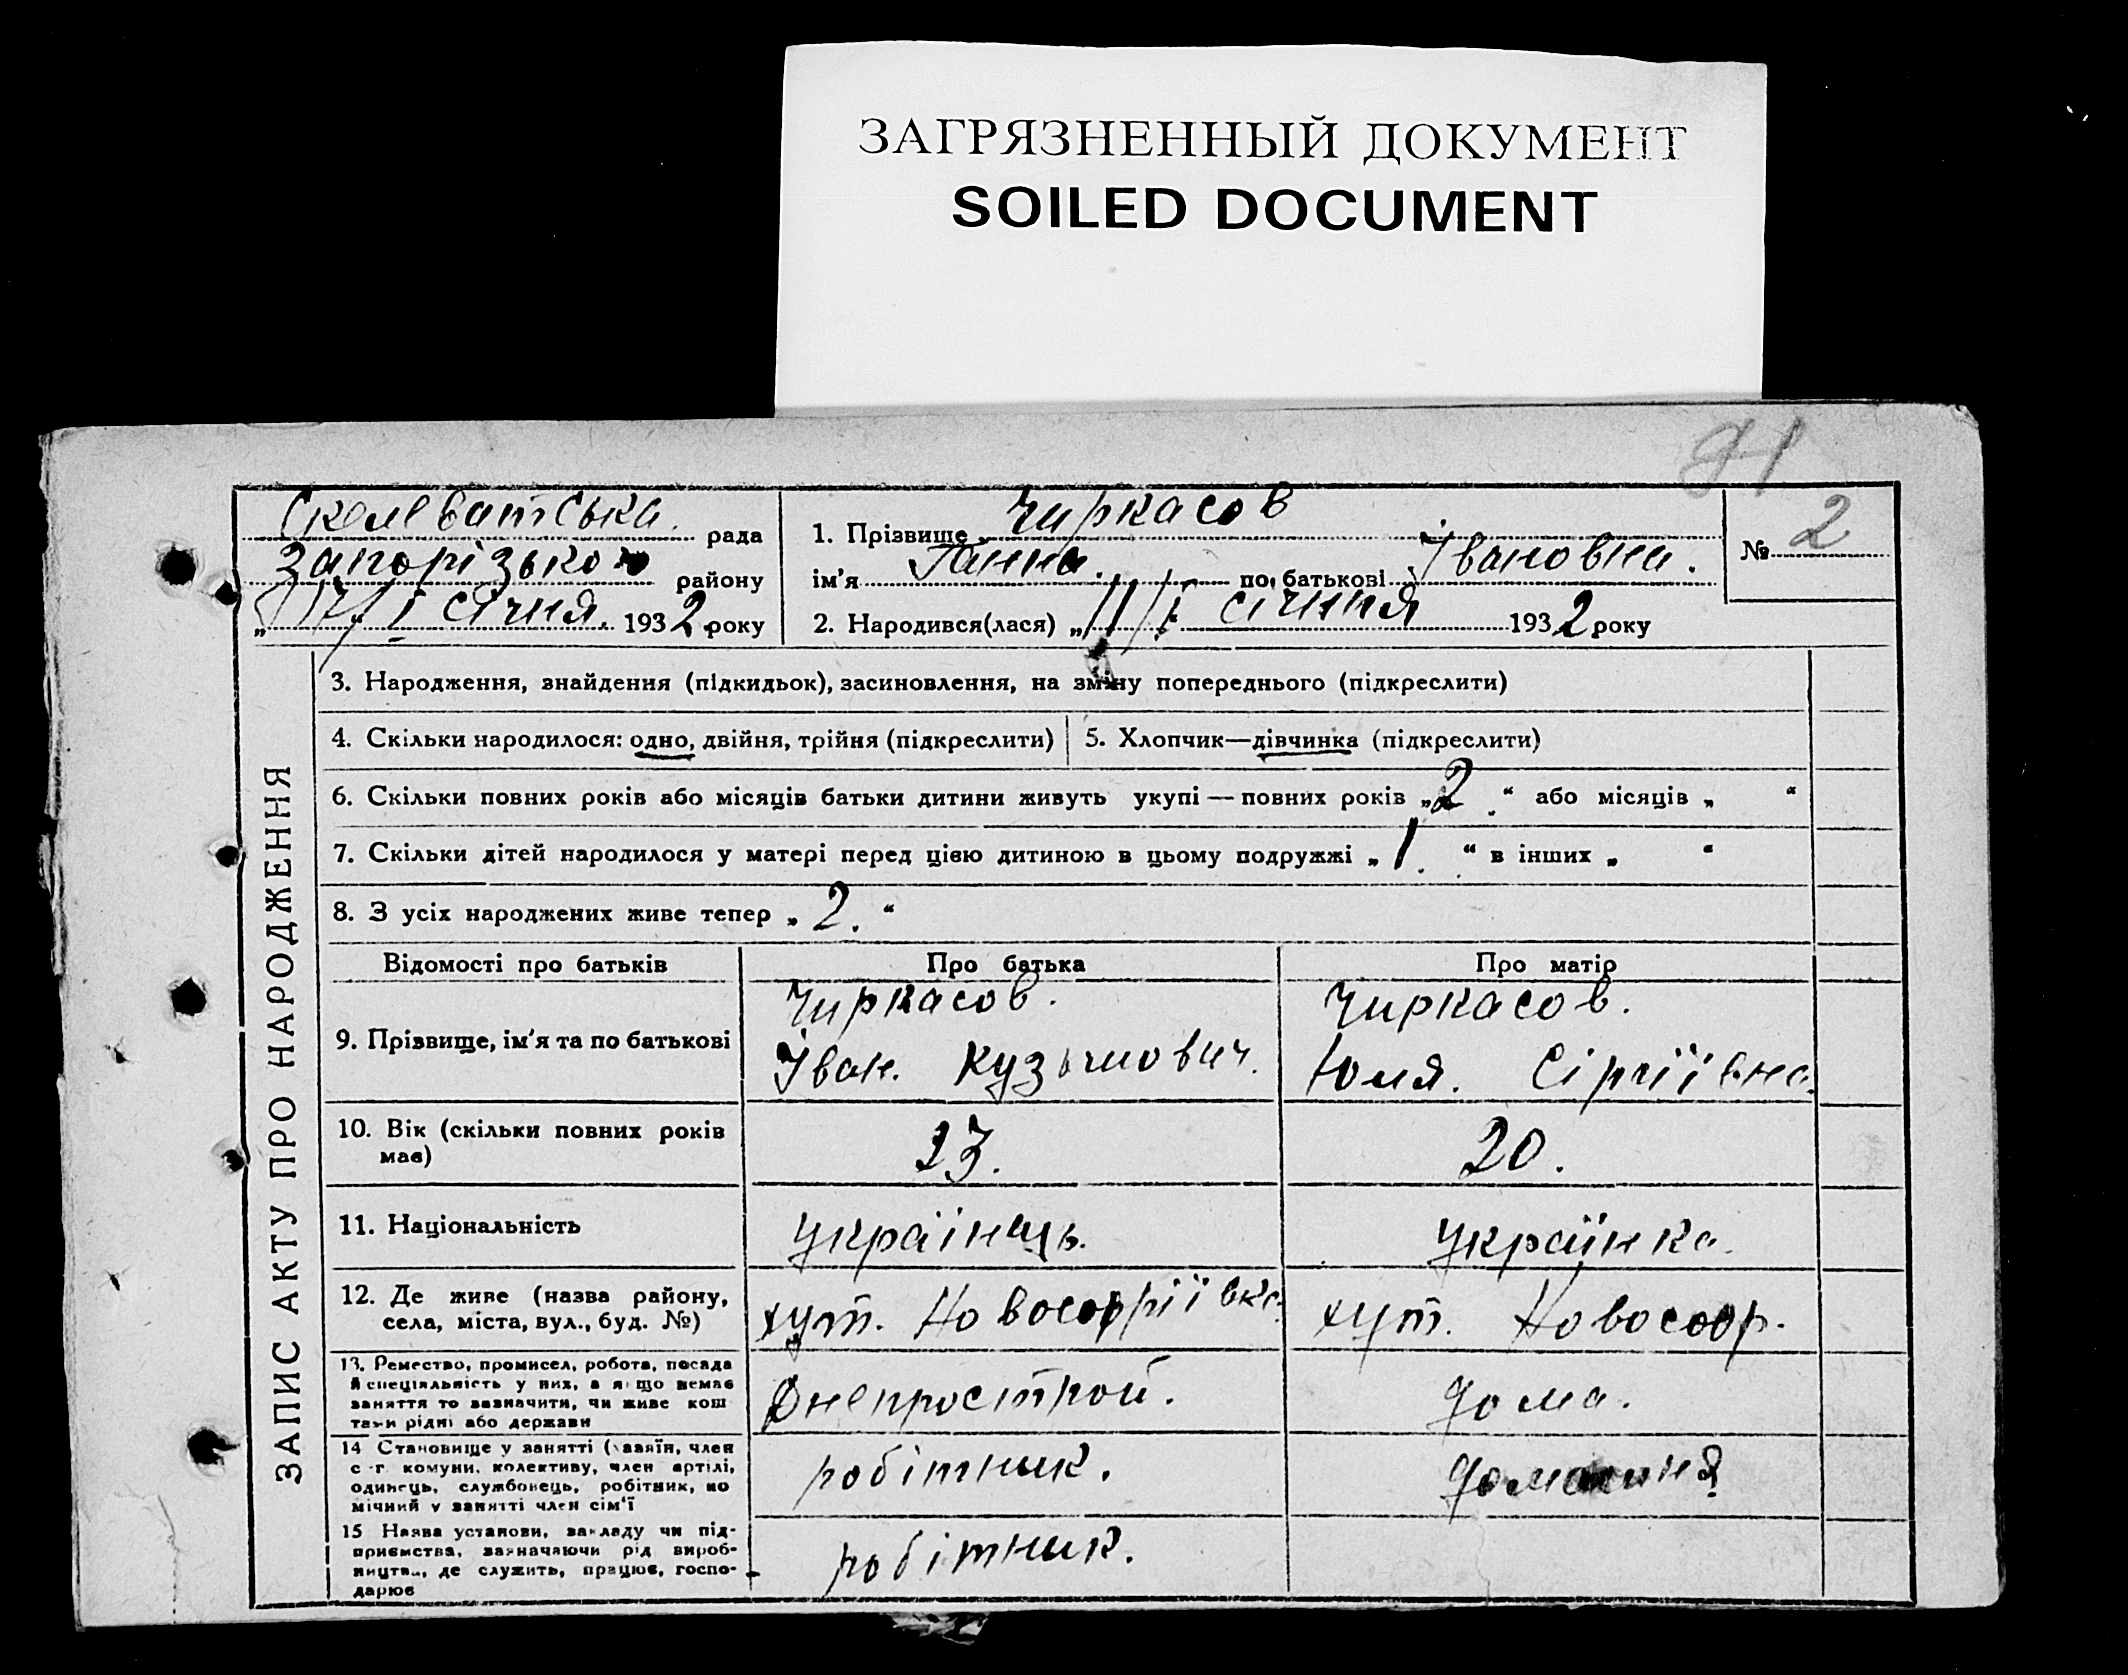 ЗАГРЯЗНЕННЫЙ ДОКУМЕНТ
SOILED DOCUMENT
91
Скелеватська рада
Запорізького району
„17/I“ січня. 1932 року
1. Прізвище Чиркасов
ім'я Ганна. по батькові Івановна.
2. Народився(лася) „11/I“ січння 1932 року
№ 2
ЗАПИС АКТУ ПРО НАРОДЖЕННЯ
3. Народження, знайдення (підкидьок), засиновлення, на зміну попереднього (підкреслити)
4. Скільки народилося: одно, двійня, трійня (підкреслити)
5. Хлопчик—дівчинка (підкреслити)
6. Скільки повних років або місяців батьки дитини живуть укупі — повних років „2.“ або місяців „ “
7. Скільки дітей народилося у матері перед цією дитиною в цьому подружжі „1.“ в інших „ “
8. З усіх народжених живе тепер „2.“
Відомості про батьків
Про батька
Про матір
9. Прізвище, ім'я та по батькові
Чиркасов.
Іван. Кузьмович.
Чиркасов.
Юля. Сіргіївна.
10. Вік (скільки повних років
має)
23.
20.
11. Національність
українць.
українка.
12. Де живе (назва району,
села, міста, вул., буд. №)
хут. Новософіївка
хут. Новософ.
13. Ремество, промисел, робота, посада
й спеціяльність у них, а якщо немає
заняття то зазначити, чи живе кош
тами рідні або держави
Днепрострой.
дома.
14 Становище у занятті (хазяїн, член
с-г. комуни, колективу, член артілі,
одинець, службовець, робітник, по
мічний у занятті член сім'ї
робітник.
15 Назва установи, закладу чи під-
приємства, зазначаючи рід вироб-
ництва, де служить, працює, госпо-
дарює
робітник.